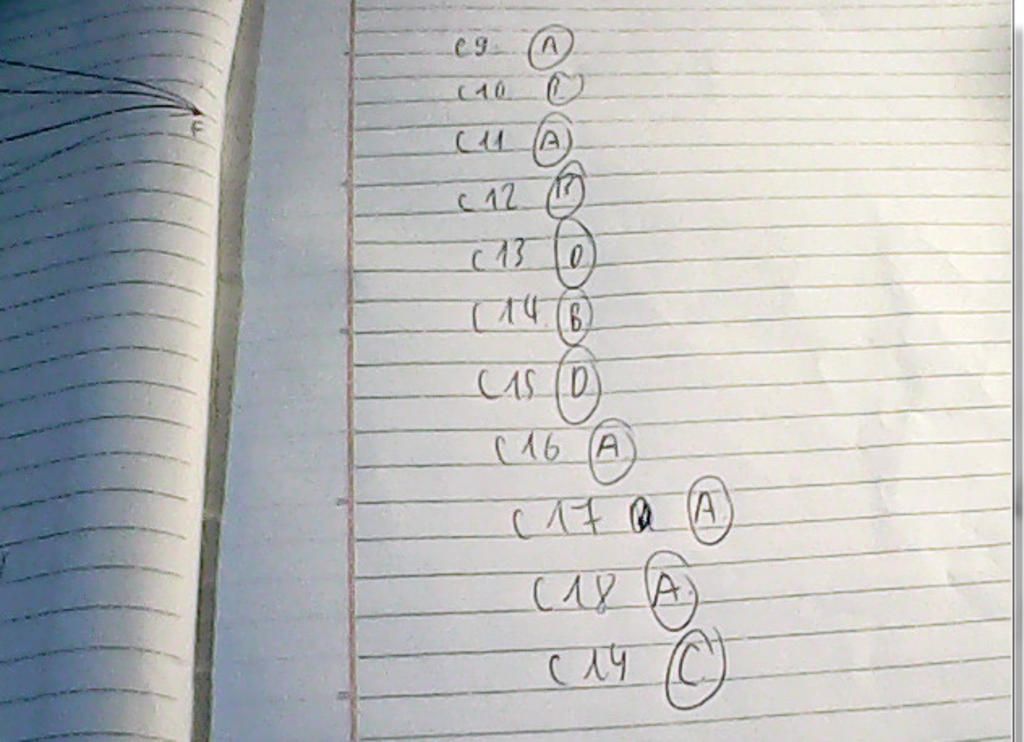 F
C9 A
C10
C11 A
C12
C13 D
C14 B
C15 D
C16 A
C17 A
C18 A
C14 C